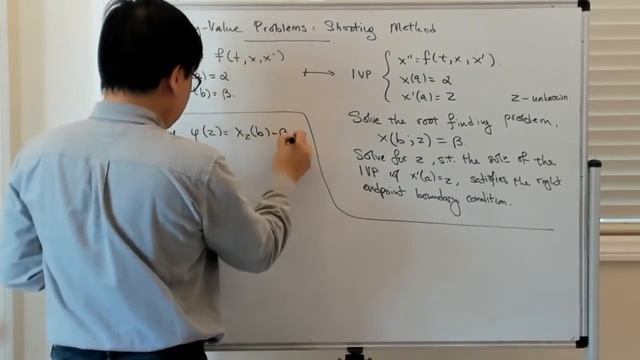 y-Value Problems: Shooting Method
f(t, x, x')
(a) = α
(b) = β.
⟼ IVP { x'' = f(t, x, x').
x(a) = α
x'(a) = z z-unknown.
Solve the root finding problem,
x(b; z) = β.
Solve for z, st. the soln of the
IVP w/ x'(a)=z, satisfies the right
endpoint boundary condition.
φ(z) = x_z(b) - β